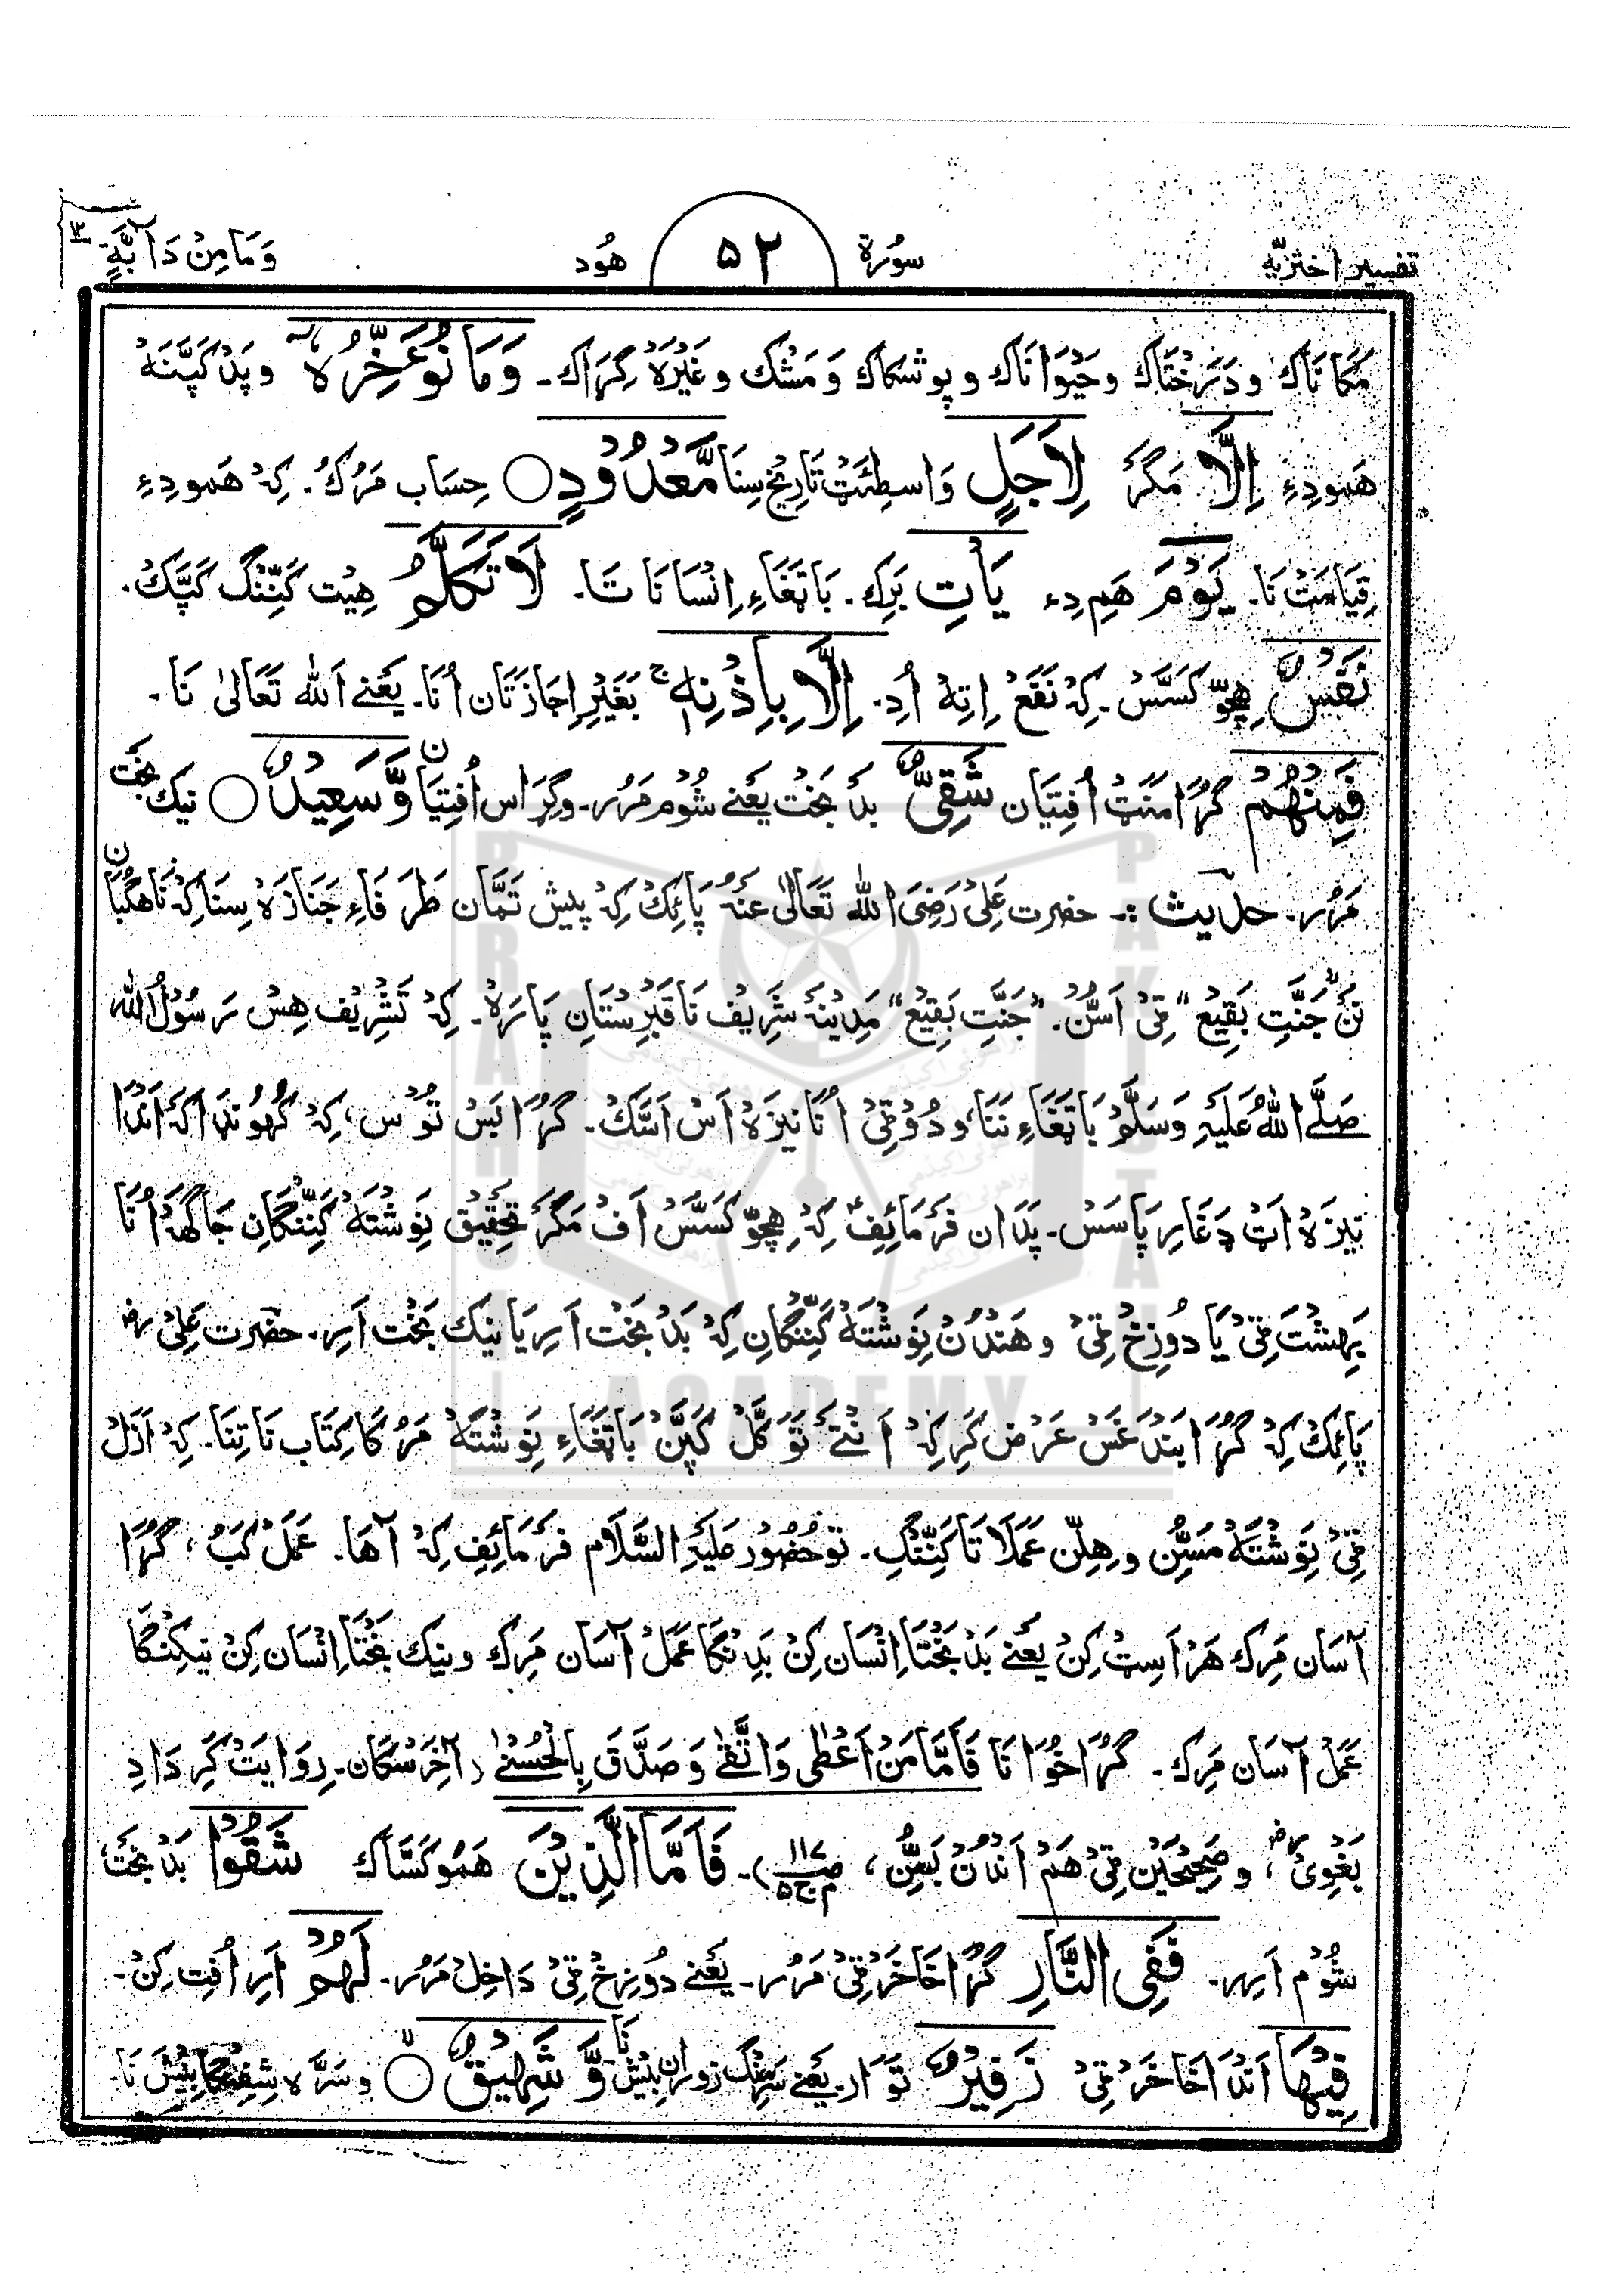 تفسیر اختریّہ سُورۃ ۵۲ ھُود وَمَا مِنْ دَآبَّۃٍ ۱۲
مَکَانَاکْ و دَرَخْتَاکْ وحَیْوَانَاکْ و پوشکاکْ وَ مَشْک و غَیْرَہْ گِرَاکْ۔ وَمَا نُوَخِّرُہٗ وپَدْ کَپَّنَہْ
ھَمودِءِ اِلَّا مَگَرْ لِاَجَلٍ وَاسطِئَتْ تَارِیخْ سِنَا مَّعْدُوْدٍ○ حِسَاب مَرُکْ۔ کِہْ ھَمودِءِ
قِیَامَتْ نَا۔ یَوْمَ ھَمِ دِءِ یَأْتِ بَرِکْ۔ بَاتِغَاءِ اِنْسَانَا تَا۔ لَا تَکَلَّمُ ھِیْت کَنِّنْگ کَپَّکْ۔
نَفْسٌ ھِچّو کَسَسّْ۔ کِہْ نَفَعْ اِتِہْ اُدِ۔ اِلَّا بِاِذْنِہٖ بَغَیْرِ اِجَازَتَان اُنَا۔ یَعْنے اَللہ تَعَالیٰ نَا۔
فَمِنْهُمْ گُڑَا مَنَتْ اُفِتِیَان شَقِیٌّ بَدْ بَخْتْ یعْنے شُوْم مَرُر۔ وگِرَاس اُفِتِیَان وَّسَعِیْدٌ○ نیک بَخْت
مَرُر۔ حدیث :۔ حضرت عَلِیْ رَضِیَ اللہ تَعَالیٰ عَنْہُ پَائِکْ کِہْ پیش تَمَّان طَرَفَاءِ جَنَازَہ سِنَا کِہْ نَاھَگُبَان
نَنْ "جَنَّتِ بَقِیْعْ" ٹِیْ اَسُّنْ۔ "جَنَّتِ بَقِیْعْ" مَدِیْنَۂ شَرِیْف نَا قَبْرِسْتَانِ پَارَہْ۔ کِہْ تَشْرِیْف ھِسْ رَسُوْلُ اللہ
صَلَّے اللہُ عَلَیْہِ وَسَلَّمْ بَاتِغَاءِ نَنَا، ودُوْ ٹِیْ اُنَا نِیزَہْ اَسْ اَسَّکْ۔ گُڑَا بَسْ تُوْس، کِہْ کُھونْداکَہْ اَنْدَا
نِیزَہْ اَتْ دَغَارِ پَاسَسْ۔ پَدَان فَرَمَائِفِ کِہْ ھِچّو کَسَسّْ اَفْ مَگَرْ تَحْقِیْق نِوِشْتَہْ کَنِّنْگانِ جَاگَہْ اُنَا
بَہِشْتَ ٹِیْ یَا دُوزِخْ ٹِیْ و ھَنْدُنْ نِوِشْتَہْ کَنِّنْگانِ کِہْ بَدْ بَخْتْ اَرِ یَا نِیک بَخْت اَرِ۔ حضرت عَلِیْ رض
پَائِکْ کِہْ گُڑَا بَنْدَغَسْ عَرْض کَرِ کِہْ اَنْتَے تَوَکَّلْ کَپِّنْ بَاتِغَاءِ نِوِشْتَہْ مَرُکَا کِتَاب نَا تِنَا۔ کِہْ اَزَلْ
ٹِیْ نِوِشْتَہْ مَسُّن و ھِلِّن عَمَلَا تَا کَنِّنْگِ۔ تو حُضُوْر عَلَیْہِ السَّلَام فَرْمَائِفِ کِہْ آھَا۔ عَمَلْ کَبُ، گُڑَا
آسَان مَرِک ھَرْ اَسِٹْ کِنْ یعْنے بَدْ بَخْتَا اِنْسَان کِنْ بَدِنْگا عَمَلْ آسَان مَرِک و نِیک بَخْتَا اِنْسَان کِنْ نِیکِنْگا
عَمَلْ آسَان مَرِک۔ گُڑَا خُوَانَا فَاَمَّا مَنْ اَعْطٰی وَاتَّقٰے وَ صَدَّقَ بِالْحُسْنٰے (آخِرْسَکَان۔ رِوَایَتْ کَرِ دَادِ
بَغْوِیْ رح، وصَحِیْحَیْن ٹِیْ ھَمْ اَنْدُنْ بَسُّنِ، صـ۱۱۷ م ج۵)۔ فَاَمَّا الَّذِیْنَ ھَمُو کَسَّاک شَقُوْا بَدْ بَخْتْ
شُوْم اَرِیر۔ فَفِی النَّارِ گُڑَا خَاخَرْ ٹِیْ مَرُر۔ یعْنے دُوْزِخْ ٹِیْ دَاخِلْ مَرُر۔ لَهُمْ اَرِ اُفِت کِنْ۔
فِیْهَا اَنْدَا خَاخَرْ ٹِیْ زَفِیْرٌ تَوَار۔ یعْنے سَرِھنْگ زوران بُشْ نَا وَّ شَهِیْقٌ○